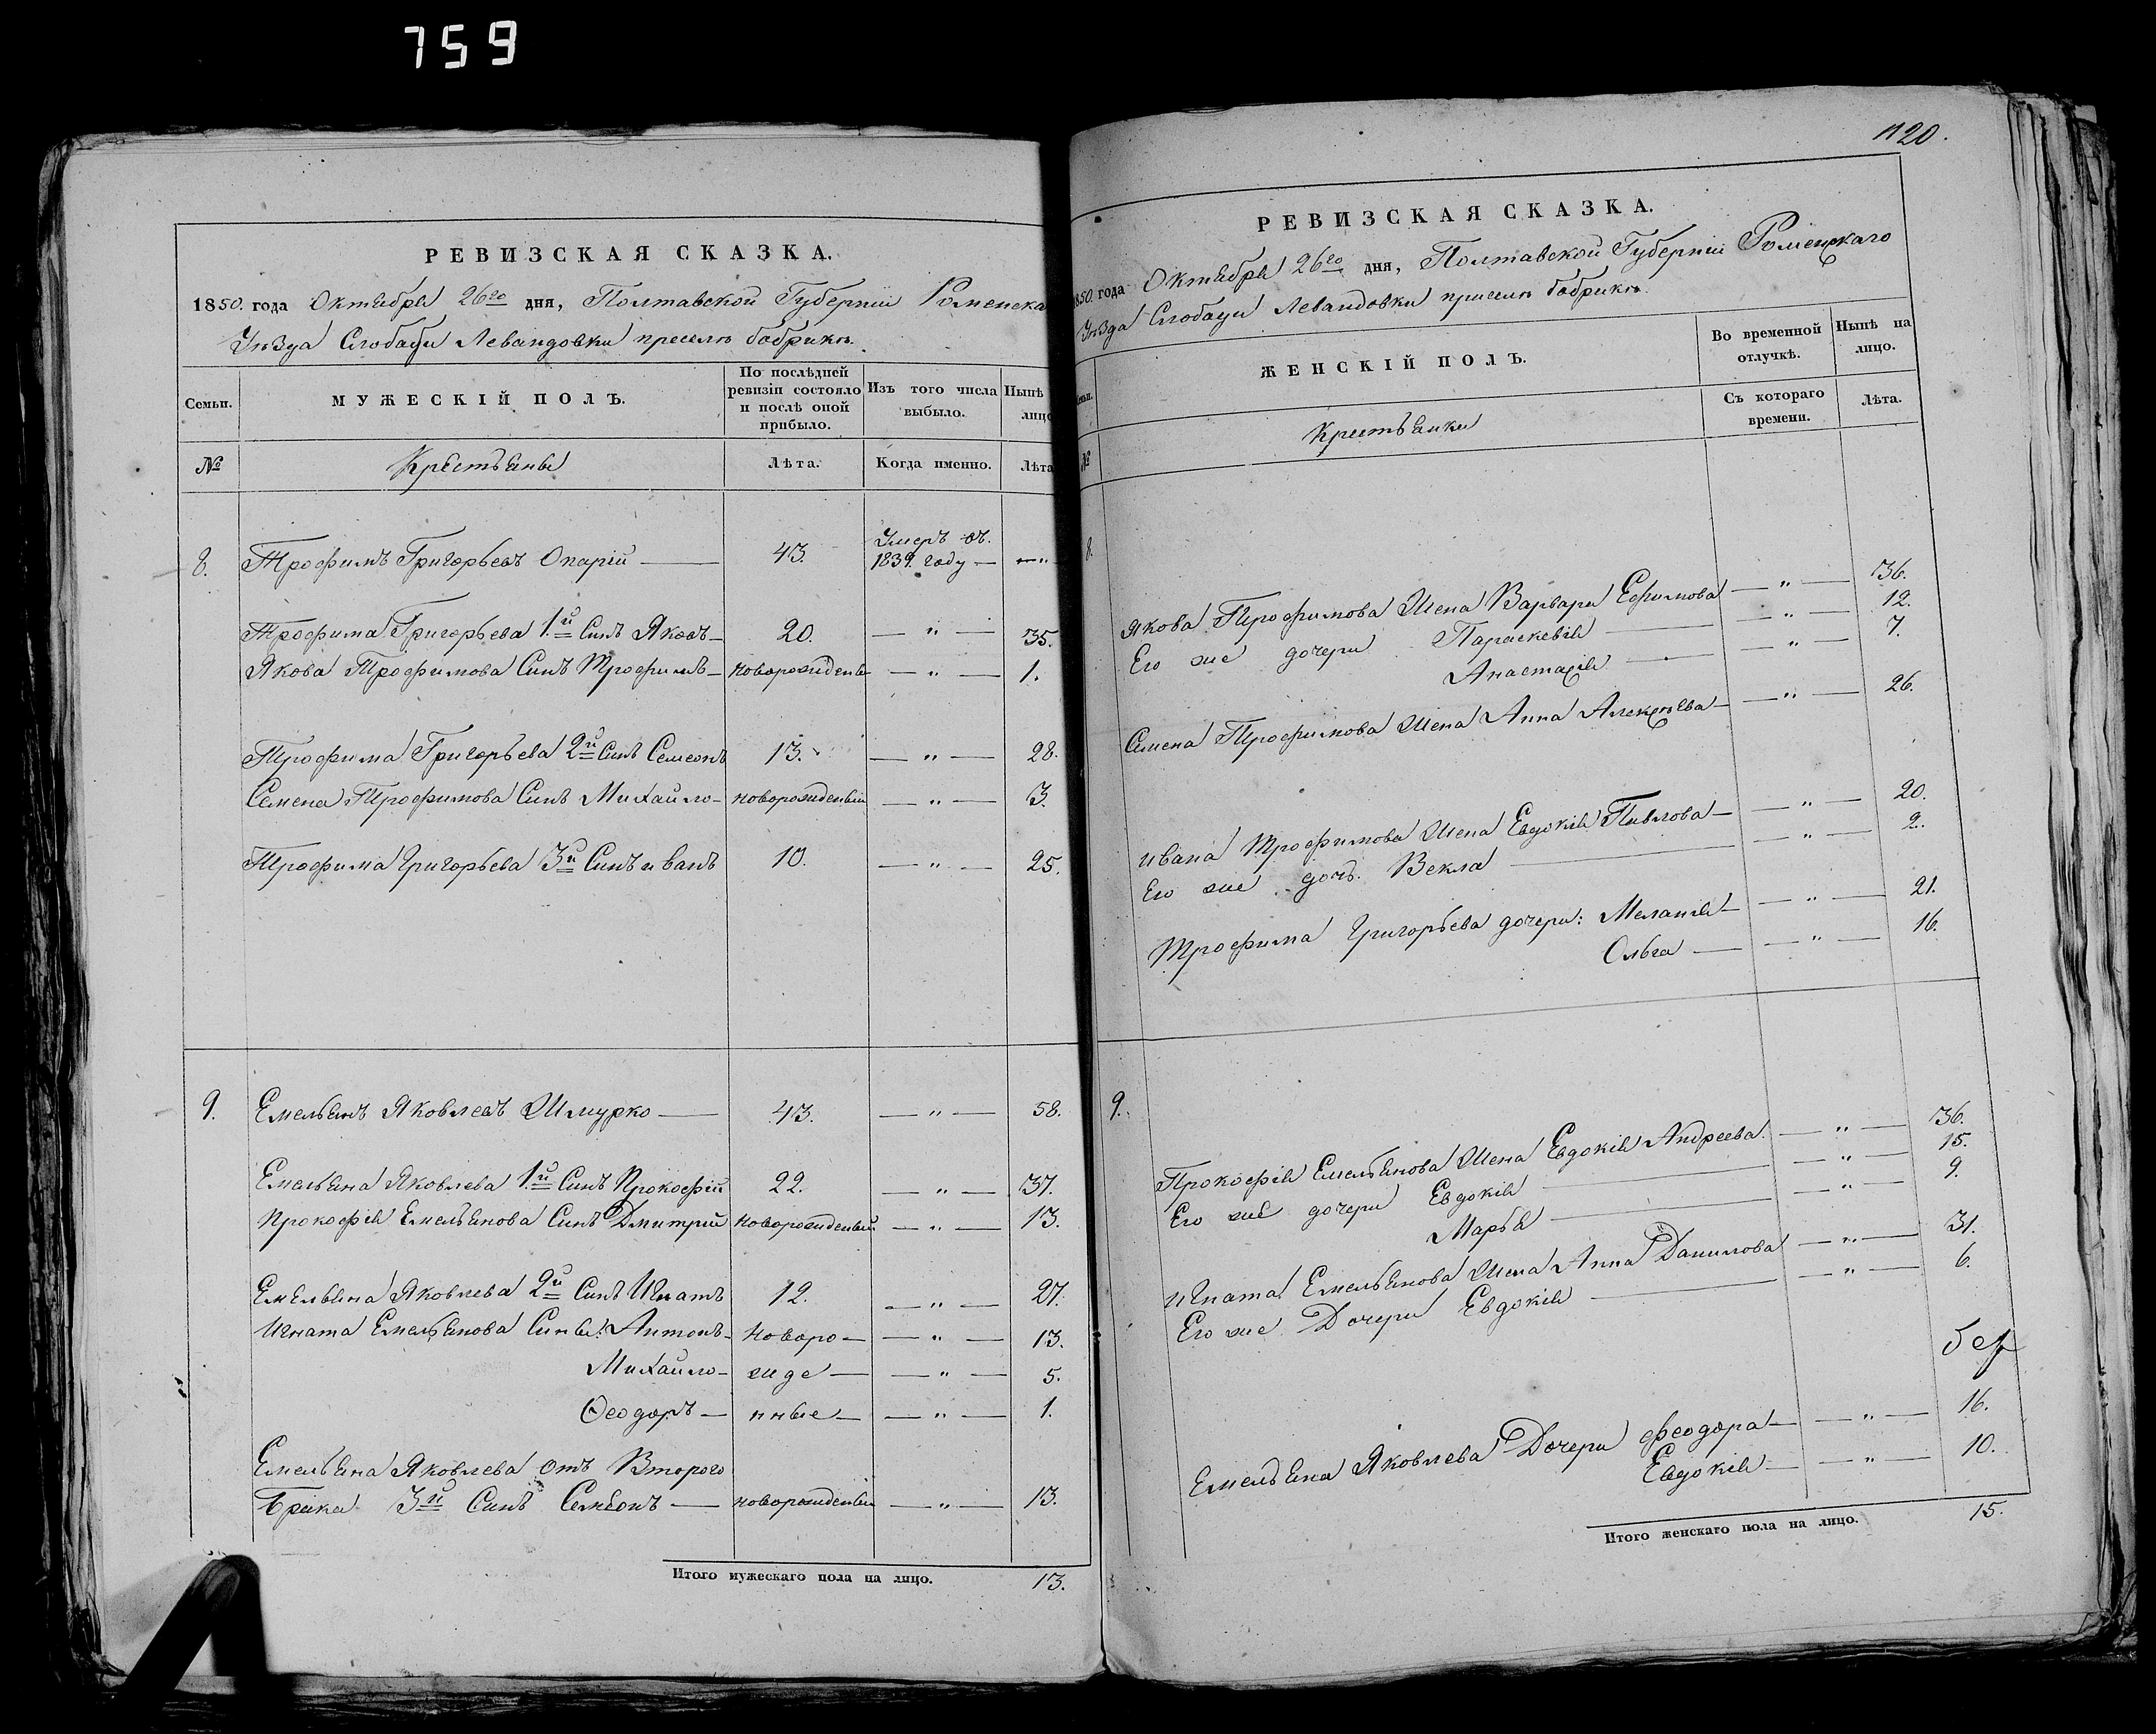 759
РЕВИЗСКАЯ СКАЗКА.
1850. года Октября 26го дня, Полтавской Губерніи Роменска
Уѣзда Слободы Левандовки приселѣ бобрикѣ.
Семьи. МУЖЕСКІЙ ПОЛЪ. По послѣдней ревизіи состояло и послѣ оной прибыло. Изъ того числа выбыло. Нынѣ лицо
№ Крестьяне Лѣта. Когда именно. Лѣта
8. Трофимъ Григорьевъ Опарій — 43. Умеръ въ 1839. году — — "
Трофима Григорьева 1.й Синъ Яковъ — 20. — " — 35.
Якова Трофимова Синъ Трофимъ — новорожденны — " — 1.
Трофима Григорьева 2й Синъ Семеонъ 13. — " — 28.
Семена Трофимова Синъ Михайло — новорожденный — " — 3.
Трофима Григорьева 3й Синъ иванъ 10. — " — 25.
9. Емельянъ Яковлевъ Шмурко — 43. — " — 58.
Емельяна Яковлева 1.й Синъ Прокофій 22. — " — 37.
Прокофія Емельянова Синъ Дмитрій новорожденный — " — 13.
Емельяна Яковлева 2й Синъ Игнатъ 12. — " — 27.
Игната Емельянова Сины: Антонъ — новоро — — " — 13.
Михайло — жде — — " — 5.
Ѳеодоръ — нные — — " — 1.
Емельяна Яковлева отъ Второго
брака 3й Синъ Семеонъ — новорожденны — " — 13.
Итого мужескаго пола на лицо. 13.
1120.
РЕВИЗСКАЯ СКАЗКА.
1850. года Октября 26го дня, Полтавской Губерніи Роменскаго
Уѣзда Слободы Левандовки приселѣ бобрикѣ.
Семьи. ЖЕНСКІЙ ПОЛЪ. Во временной отлучкѣ. Нынѣ на лицо.
№ Крестьянки Съ котораго времени. Лѣта.
8.
Якова Трофимова Жена Варвара Ефимова — " — 36.
Его же дочери Параскевія — " — 12.
Анастасія — " — 7.
Семена Трофимова Жена Анна Алексѣева — " — 26.
ивана Трофимова Жена Евдокія Павлова — " — 20.
Его же дочь Векла — " — 2.
Трофима Григорьева дочери: Меланія — " — 21.
Ольга — " — 16.
9.
Прокофія Емельянова Жена Евдокія Андреева. — " — 36.
Его же дочери Евдокія — " — 15.
Марья — " — 9.
игната Емельянова Жена Анна Данилова — " — 31.
Его же Дочери Евдокія — " — 6.
Емельяна Яковлева Дочери феодора — " — 16.
Евдокія — " — 10.
Итого женскаго пола на лицо. 15.